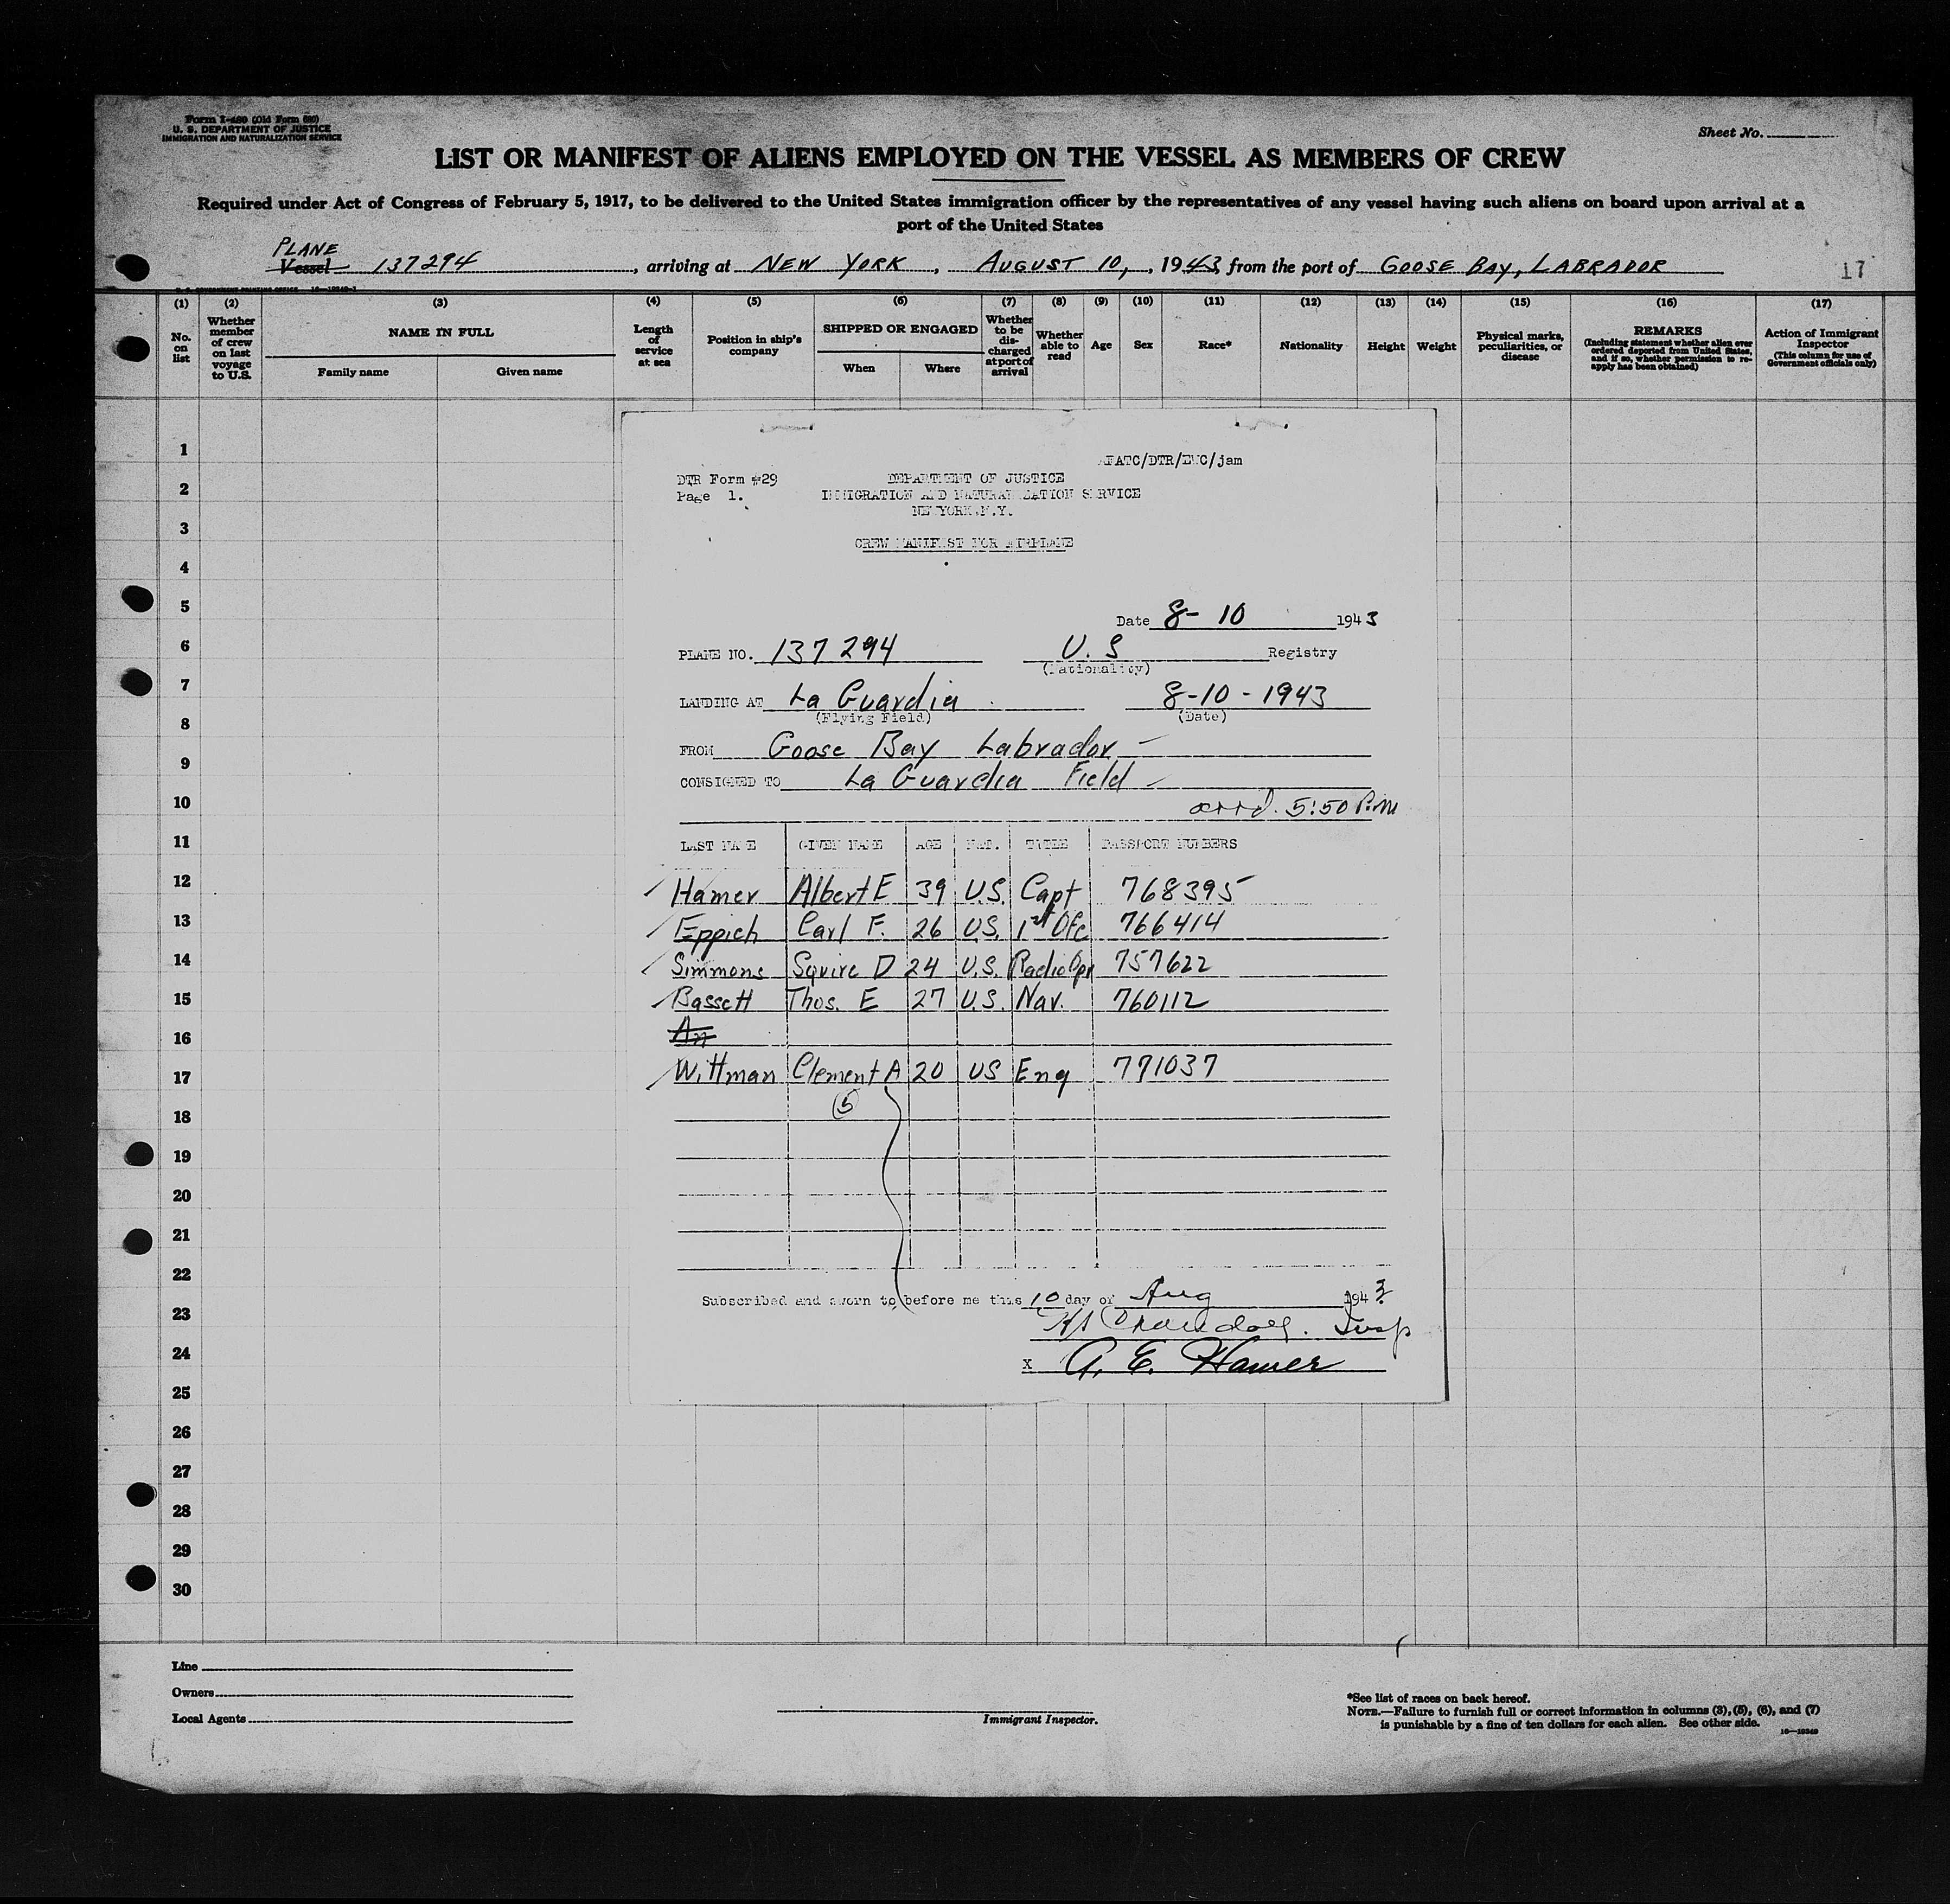 Form I-489 (Old Form 680)
U. S. DEPARTMENT OF JUSTICE
IMMIGRATION AND NATURALIZATION SERVICE
Sheet No.
LIST OR MANIFEST OF ALIENS EMPLOYED ON THE VESSEL AS MEMBERS OF CREW
Required under Act of Congress of February 5, 1917, to be delivered to the United States immigration officer by the representatives of any vessel having such aliens on board upon arrival at a
port of the United States
PLANE
Vessel 137294, arriving at NEW YORK, AUGUST 10, 1943, from the port of GOOSE BAY, LABRADOR
17
(1) (2) (3) (4) (5) (6) (7) (8) (9) (10) (11) (12) (13) (14) (15) (16) (17)
No. on list
Whether member of crew on last voyage to U.S.
NAME IN FULL
Family name
Given name
Length of service at sea
Position in ship's company
SHIPPED OR ENGAGED
When
Where
Whether to be discharged at port of arrival
Whether able to read
Age
Sex
Race*
Nationality
Height
Weight
Physical marks, peculiarities, or disease
REMARKS
(Including statement whether alien ever ordered deported from United States, and if so, whether permission to reapply has been obtained)
Action of Immigrant Inspector
(This column for use of Government officials only)
1
2
3
4
5
6
7
8
9
10
11
12
13
14
15
16
17
18
19
20
21
22
23
24
25
26
27
28
29
30
AFATC/DTR/EWC/jam
DTR Form #29 DEPARTMENT OF JUSTICE
Page 1. IMMIGRATION AND NATURALIZATION SERVICE
NEW YORK, N.Y.
CREW MANIFEST FOR AIRPLANE
Date 8-10 1943
PLANE NO. 137294 U.S Registry
(Nationality)
LANDING AT La Guardia 8-10-1943
(Flying Field) (Date)
FROM Goose Bay Labrador
CONSIGNED TO La Guardia Field
arrd. 5:50 P.M
LAST NAME GIVEN NAME AGE NAT. TITLE PASSPORT NUMBERS
Hamer Albert E 39 U.S. Capt 768395
Eppich Carl F. 26 U.S. 1st Ofc 766414
Simmons Squire D 24 U.S. Radio Opr 757622
Bassett Thos. E 27 U.S. Nav. 760112
An
Wittman Clement A 20 US Eng 771037
5
Subscribed and sworn to before me this 10 day of Aug 1943
Insp
X A. E. Hamer
Line
Owners
Local Agents
Immigrant Inspector.
*See list of races on back hereof.
NOTE.—Failure to furnish full or correct information in columns (3), (5), (6), and (7)
is punishable by a fine of ten dollars for each alien. See other side.